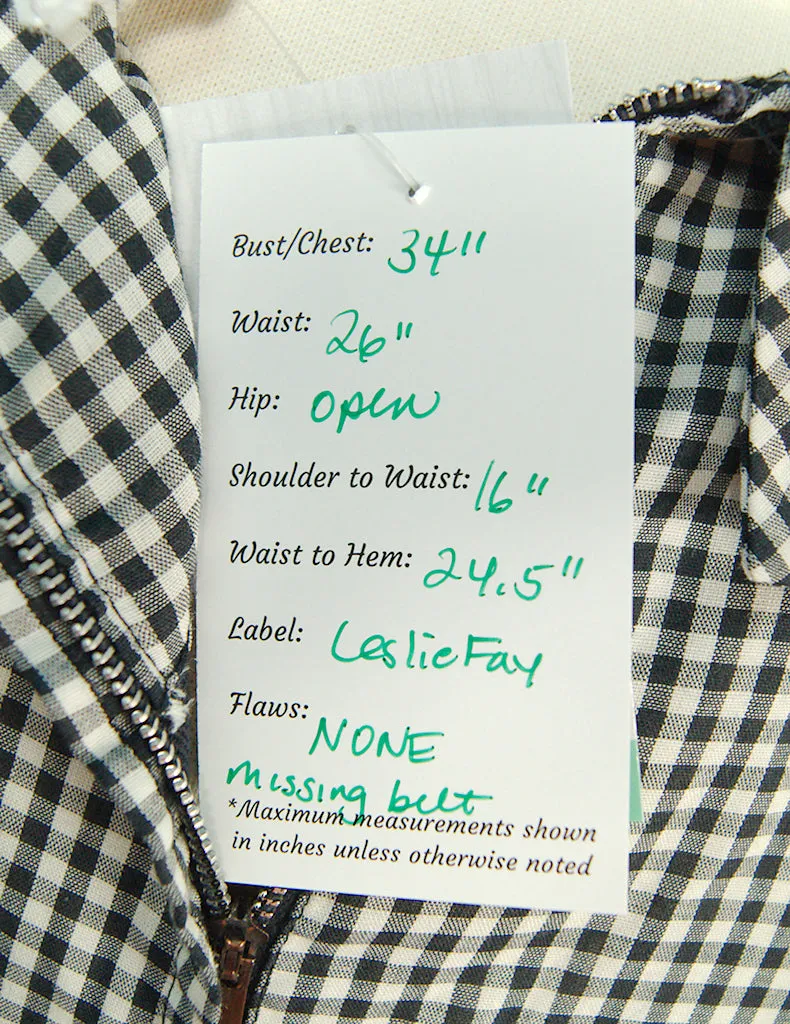 Bust/Chest: 34"
Waist: 26"
Hip: open
Shoulder to Waist: 16"
Waist to Hem: 24.5"
Label: Leslie Fay
Flaws: NONE
missing belt
*Maximum measurements shown
in inches unless otherwise noted